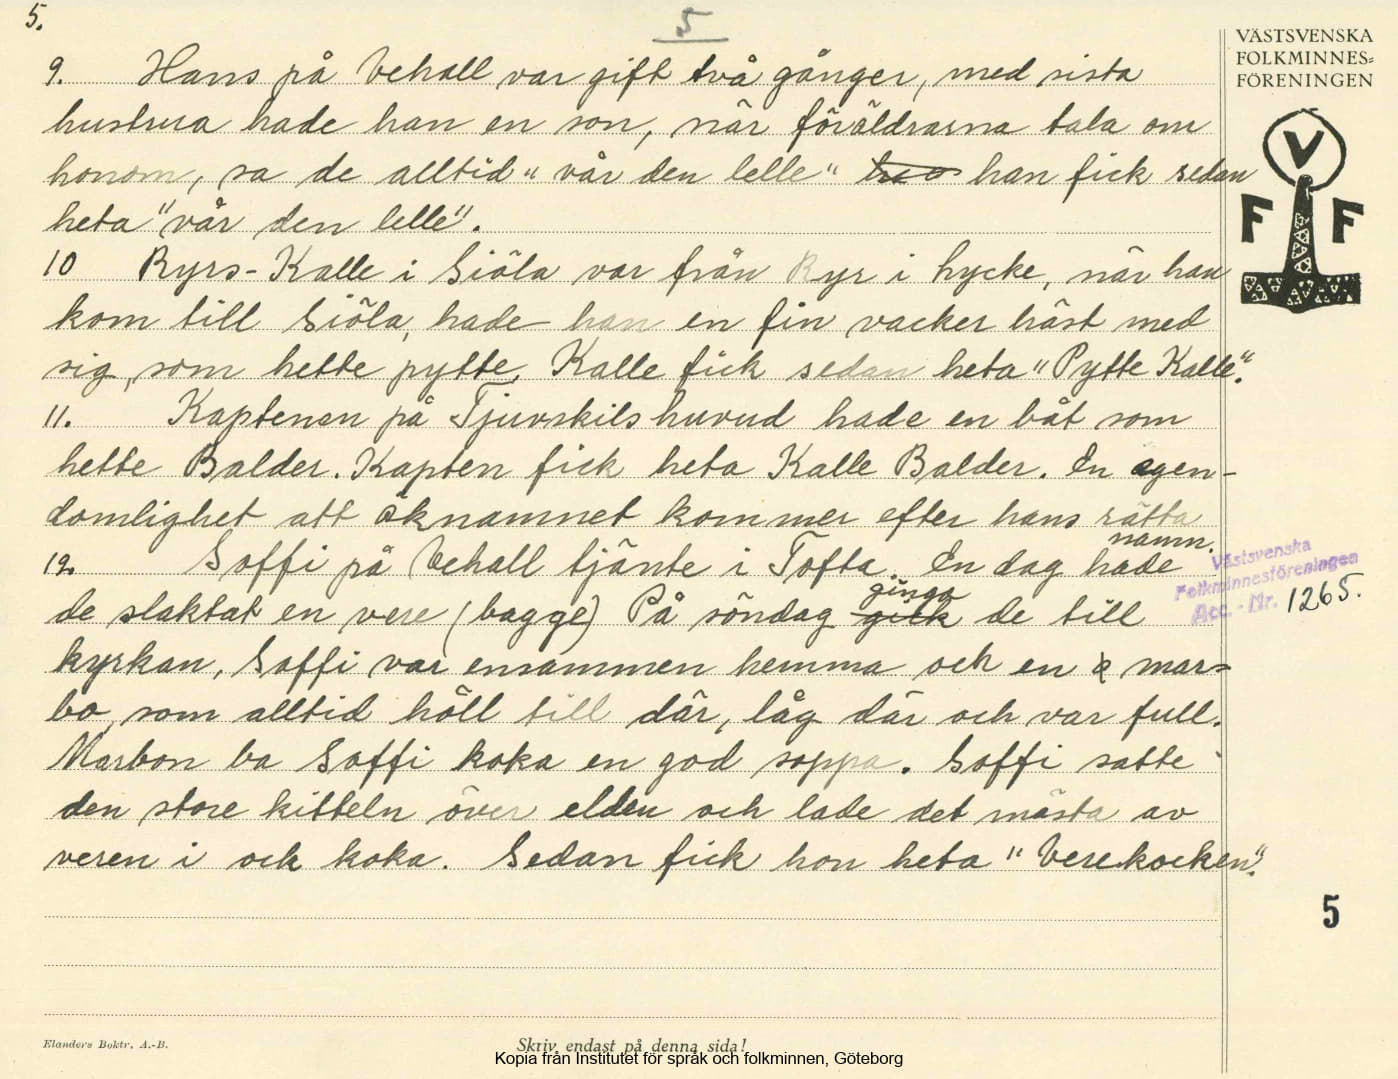 5.
5
VÄSTSVENSKA
FOLKMINNES=
FÖRENINGEN
V
F F
9. Hans på Vehall var gift två gånger, med sista
hustrua hade han en son, när föräldrarna tala om
honom, sa de alltid "vår den lelle" han fick sedan
heta "vår den lelle".
10 Ryrs-Kalle i Siöla var från Ryr i hycke, när han
kom till Siöla, hade han en fin vacker häst med
sig, som hette pytte, Kalle fick sedan heta "Pytte Kalle".
11. Kaptenen på Tjuvskilshuvud hade en båt som
hette Balder. Kapten fick heta Kalle Balder. En egen-
domlighet att öknamnet kommer efter hans rätta
namn.
12. Soffi på Vehall tjänte i Tofta. En dag hade
de slaktat en vere (bagge) På söndag gick ginga de till
kyrkan, Soffi var ensammen hemma och en mar=
bo, som alltid höll till där, låg där och var full.
Marbon ba Soffi koka en god soppa. Soffi satte
den store kitteln över elden och lade det mästa av
veren i och koka. Sedan fick hon heta "Verekocken".
Västsvenska
Folkminnesföreningen
Acc. - Nr. 1265.
5
Elanders Boktr. A.-B.
Skriv endast på denna sida!
Kopia från Institutet för språk och folkminnen, Göteborg